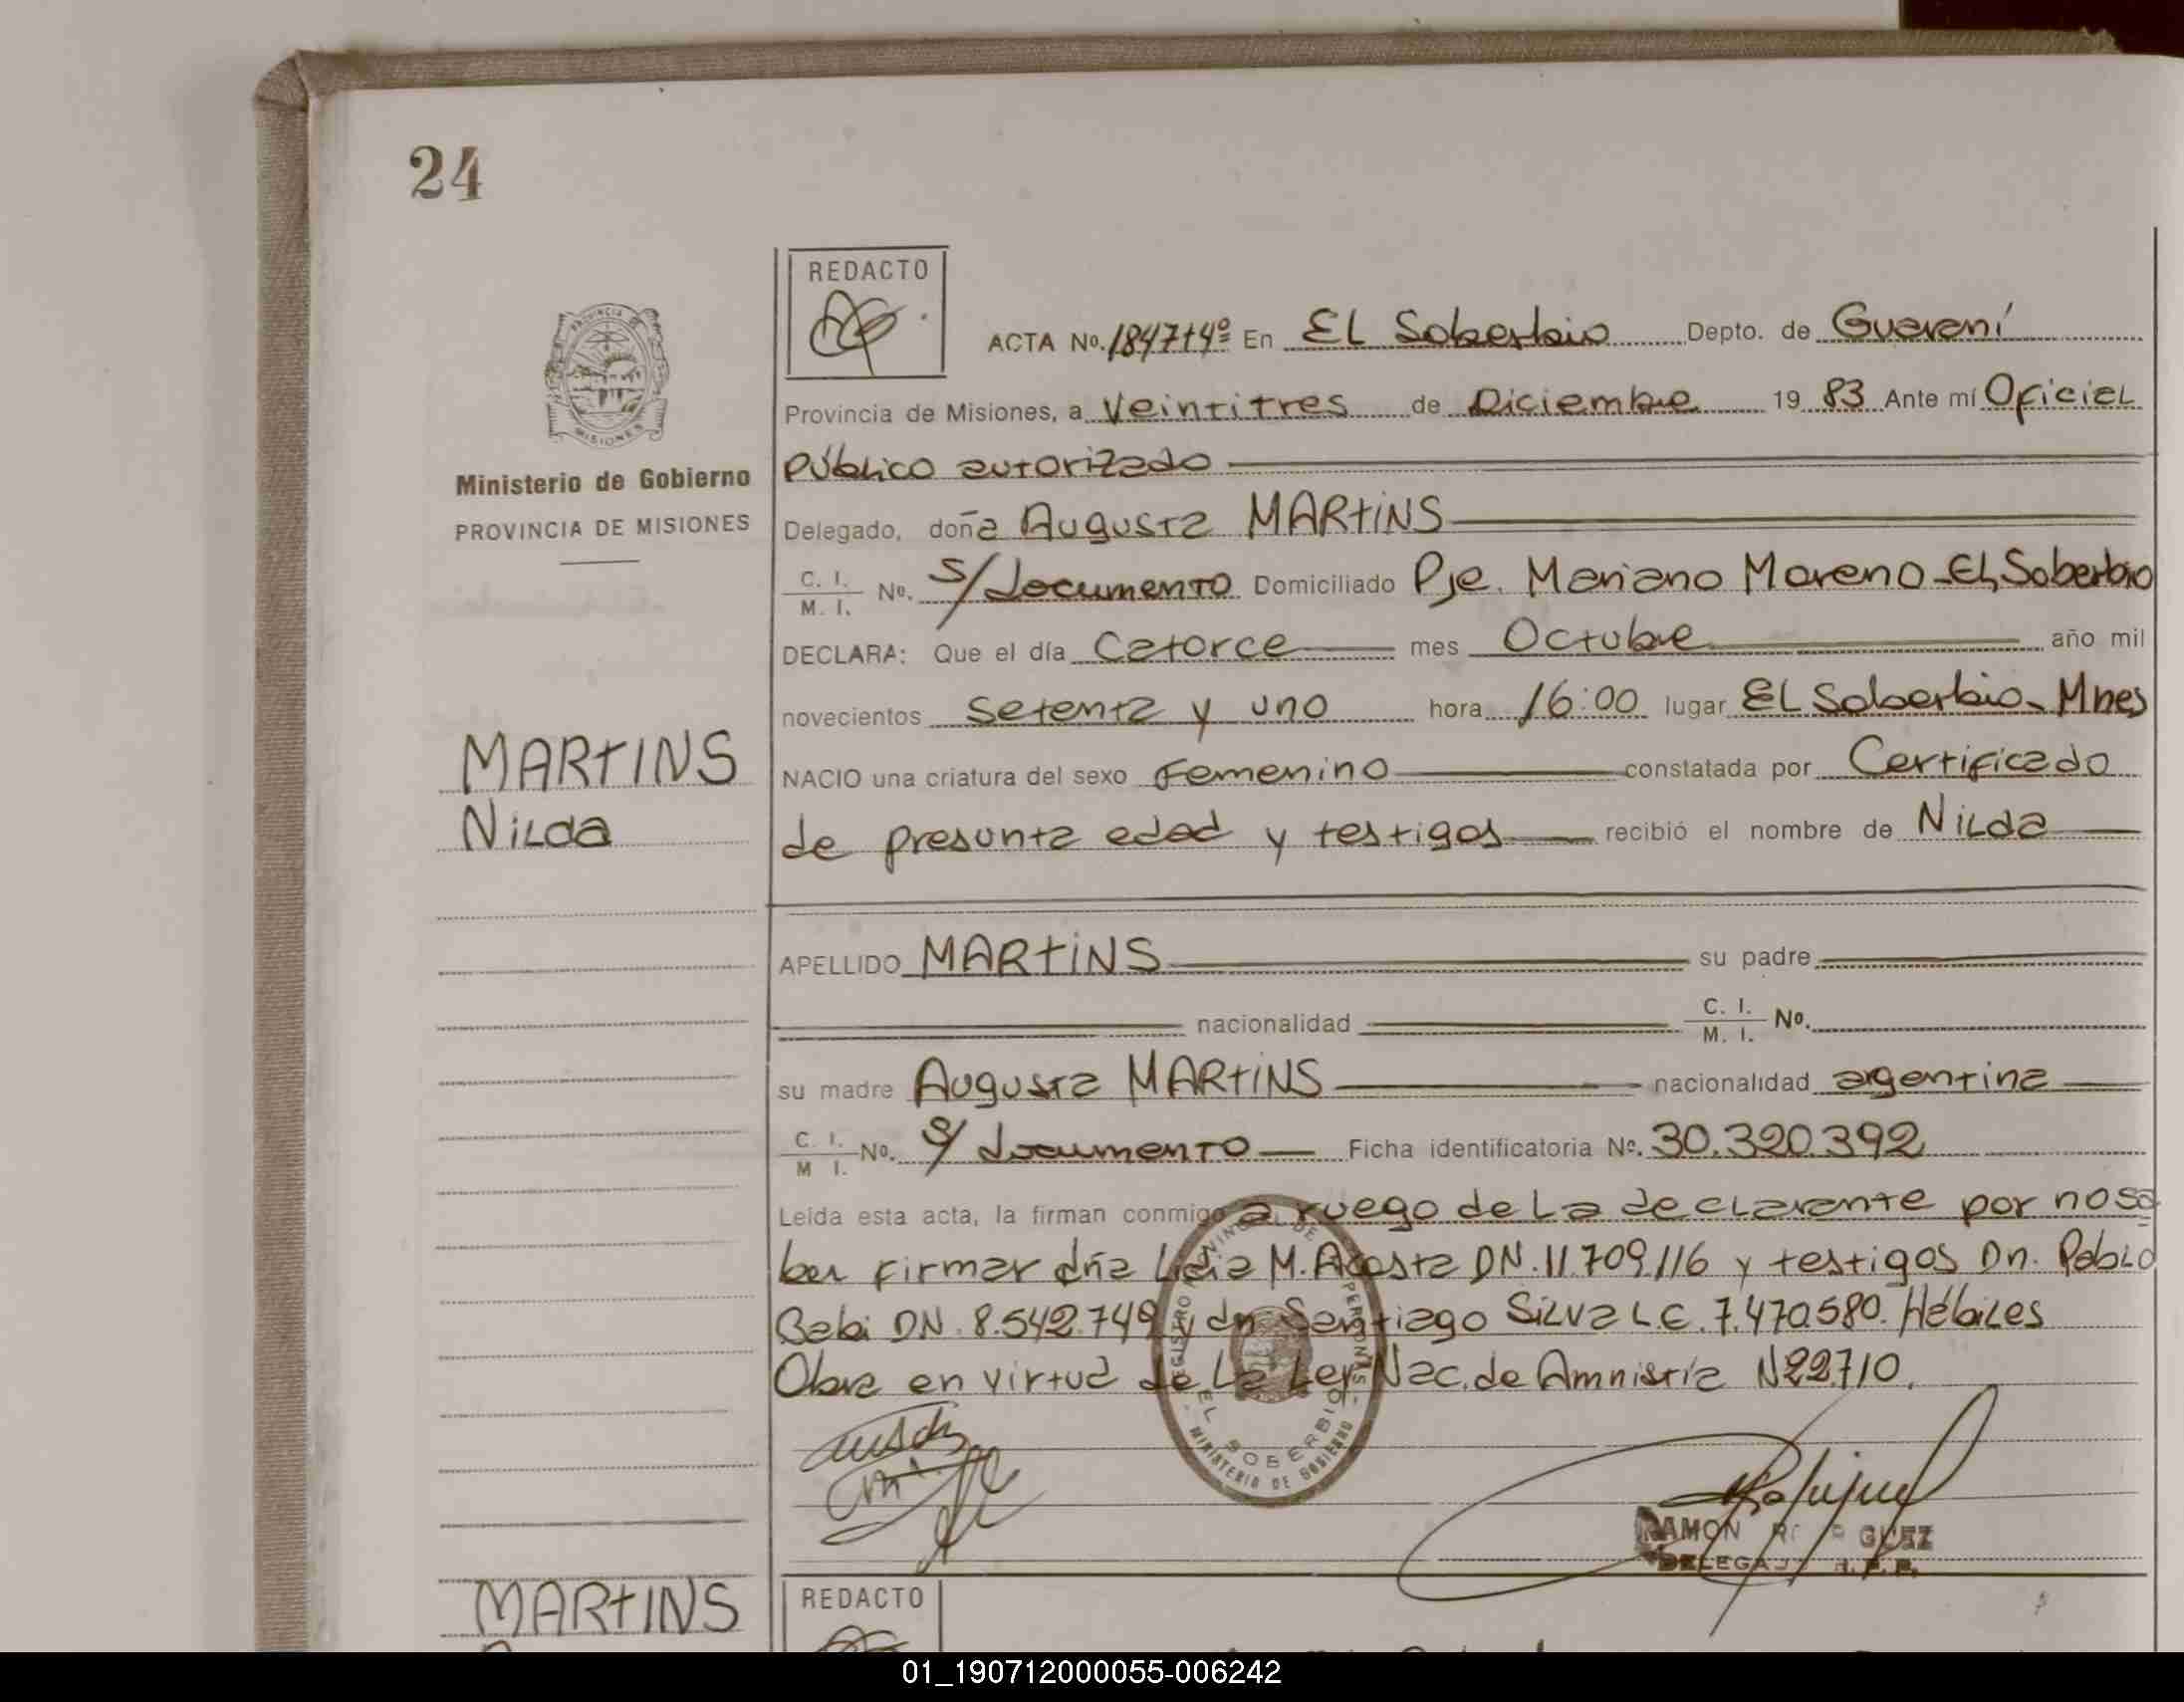 24
REDACTO
ACTA No. 1847 t 4º En El Soberbio Depto. de Guaraní
Provincia de Misiones, a Veintitres de Diciembre 19 83 Ante mí Oficial
Público autorizado
Ministerio de Gobierno
PROVINCIA DE MISIONES
Delegado, doña Augusta MARTINS
C. I. / M. I. No. S/documento Domiciliado Pje. Mariano Moreno - El Soberbio
DECLARA: Que el día Catorce mes Octubre año mil
novecientos setenta y uno hora 16:00 lugar El Soberbio - Mnes
MARTINS
Nilda
NACIO una criatura del sexo Femenino constatada por Certificado
de presunta edad y testigos recibió el nombre de Nilda
APELLIDO MARTINS su padre
nacionalidad C. I. / M. I. No.
su madre Augusta MARTINS nacionalidad argentina
C. I. / M. I. No. S/documento Ficha identificatoria No. 30.320.392
Leída esta acta, la firman conmigo a ruego de la declarante por no sa
ber firmar dña Lidia M. Acosta DN. 11.709.116 y testigos Dn. Pablo
DN. 8.542.749 y dn Santiago Silva L.E. 7.470.580. Hábiles
Obra en virtud de la Ley Nac. de Amnistía N 22.710.
REGISTRO PROVINCIAL DE PERSONAS
EL SOBERBIO
MINISTERIO DE GOBIERNO
PROVINCIA DE
MISIONES
RAMON
DELEGADO R. P. P.
MARTINS
REDACTO
01_190712000055-006242